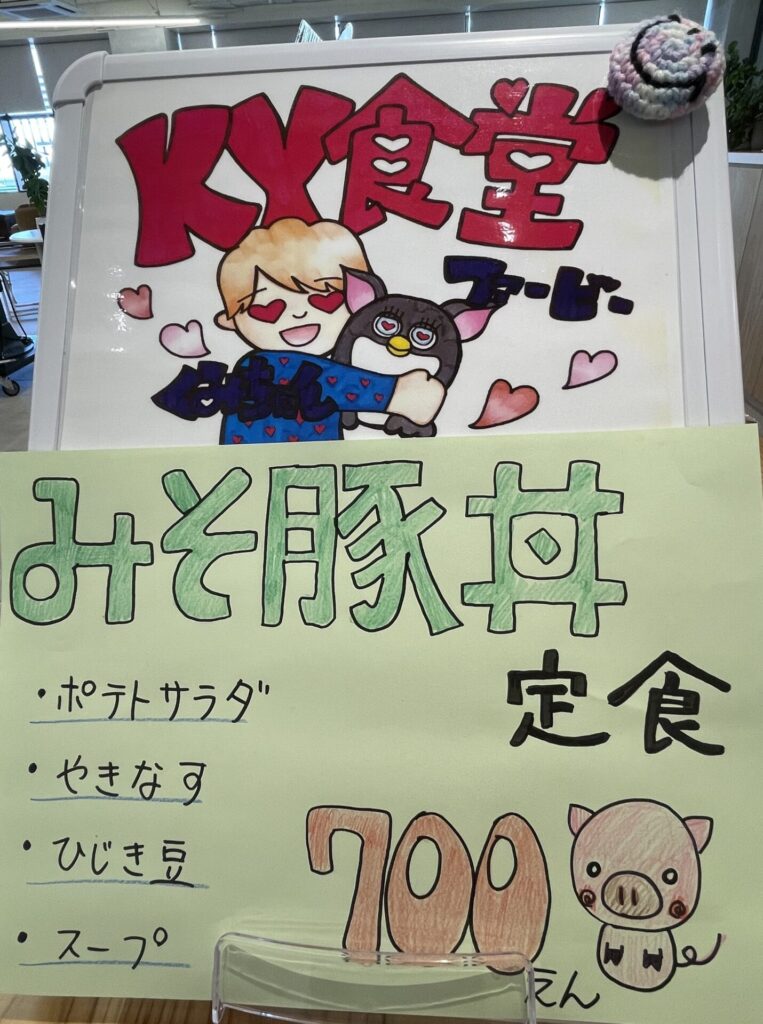 KY食堂
ファービー
くみちゃん
みそ豚丼
定食
・ポテトサラダ
・やきなす
・ひじき豆
・スープ
700
えん